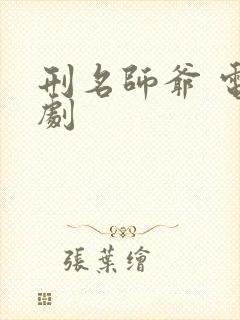 刑名師爺 電
劇
張葉繪